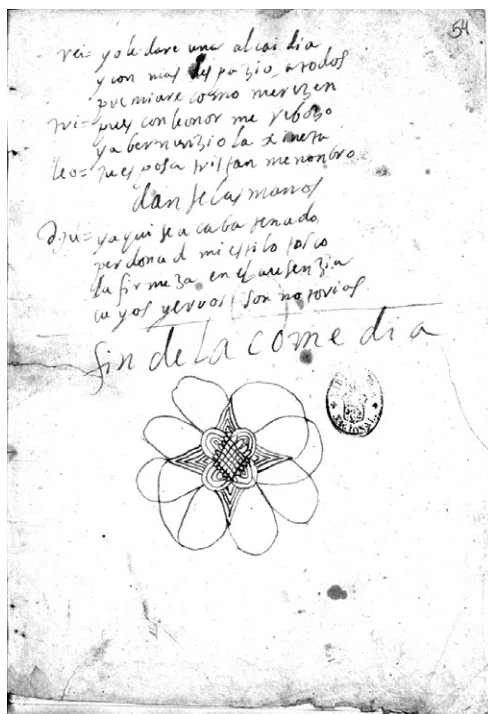 54
rei= yo le dare una alcaidia
y con mas despazio, a todos
premiare como merezen
tri= pues con leonor me rebozo
ya bermunzio la xineta
leo= tu esposa tristan me nonbro
danse las manos
y aqui se acaba senado
perdonad mi estilo tosco
la firmeza en el ausenzia
cuyos yerros son notorios
fin de la comedia
NACIONAL